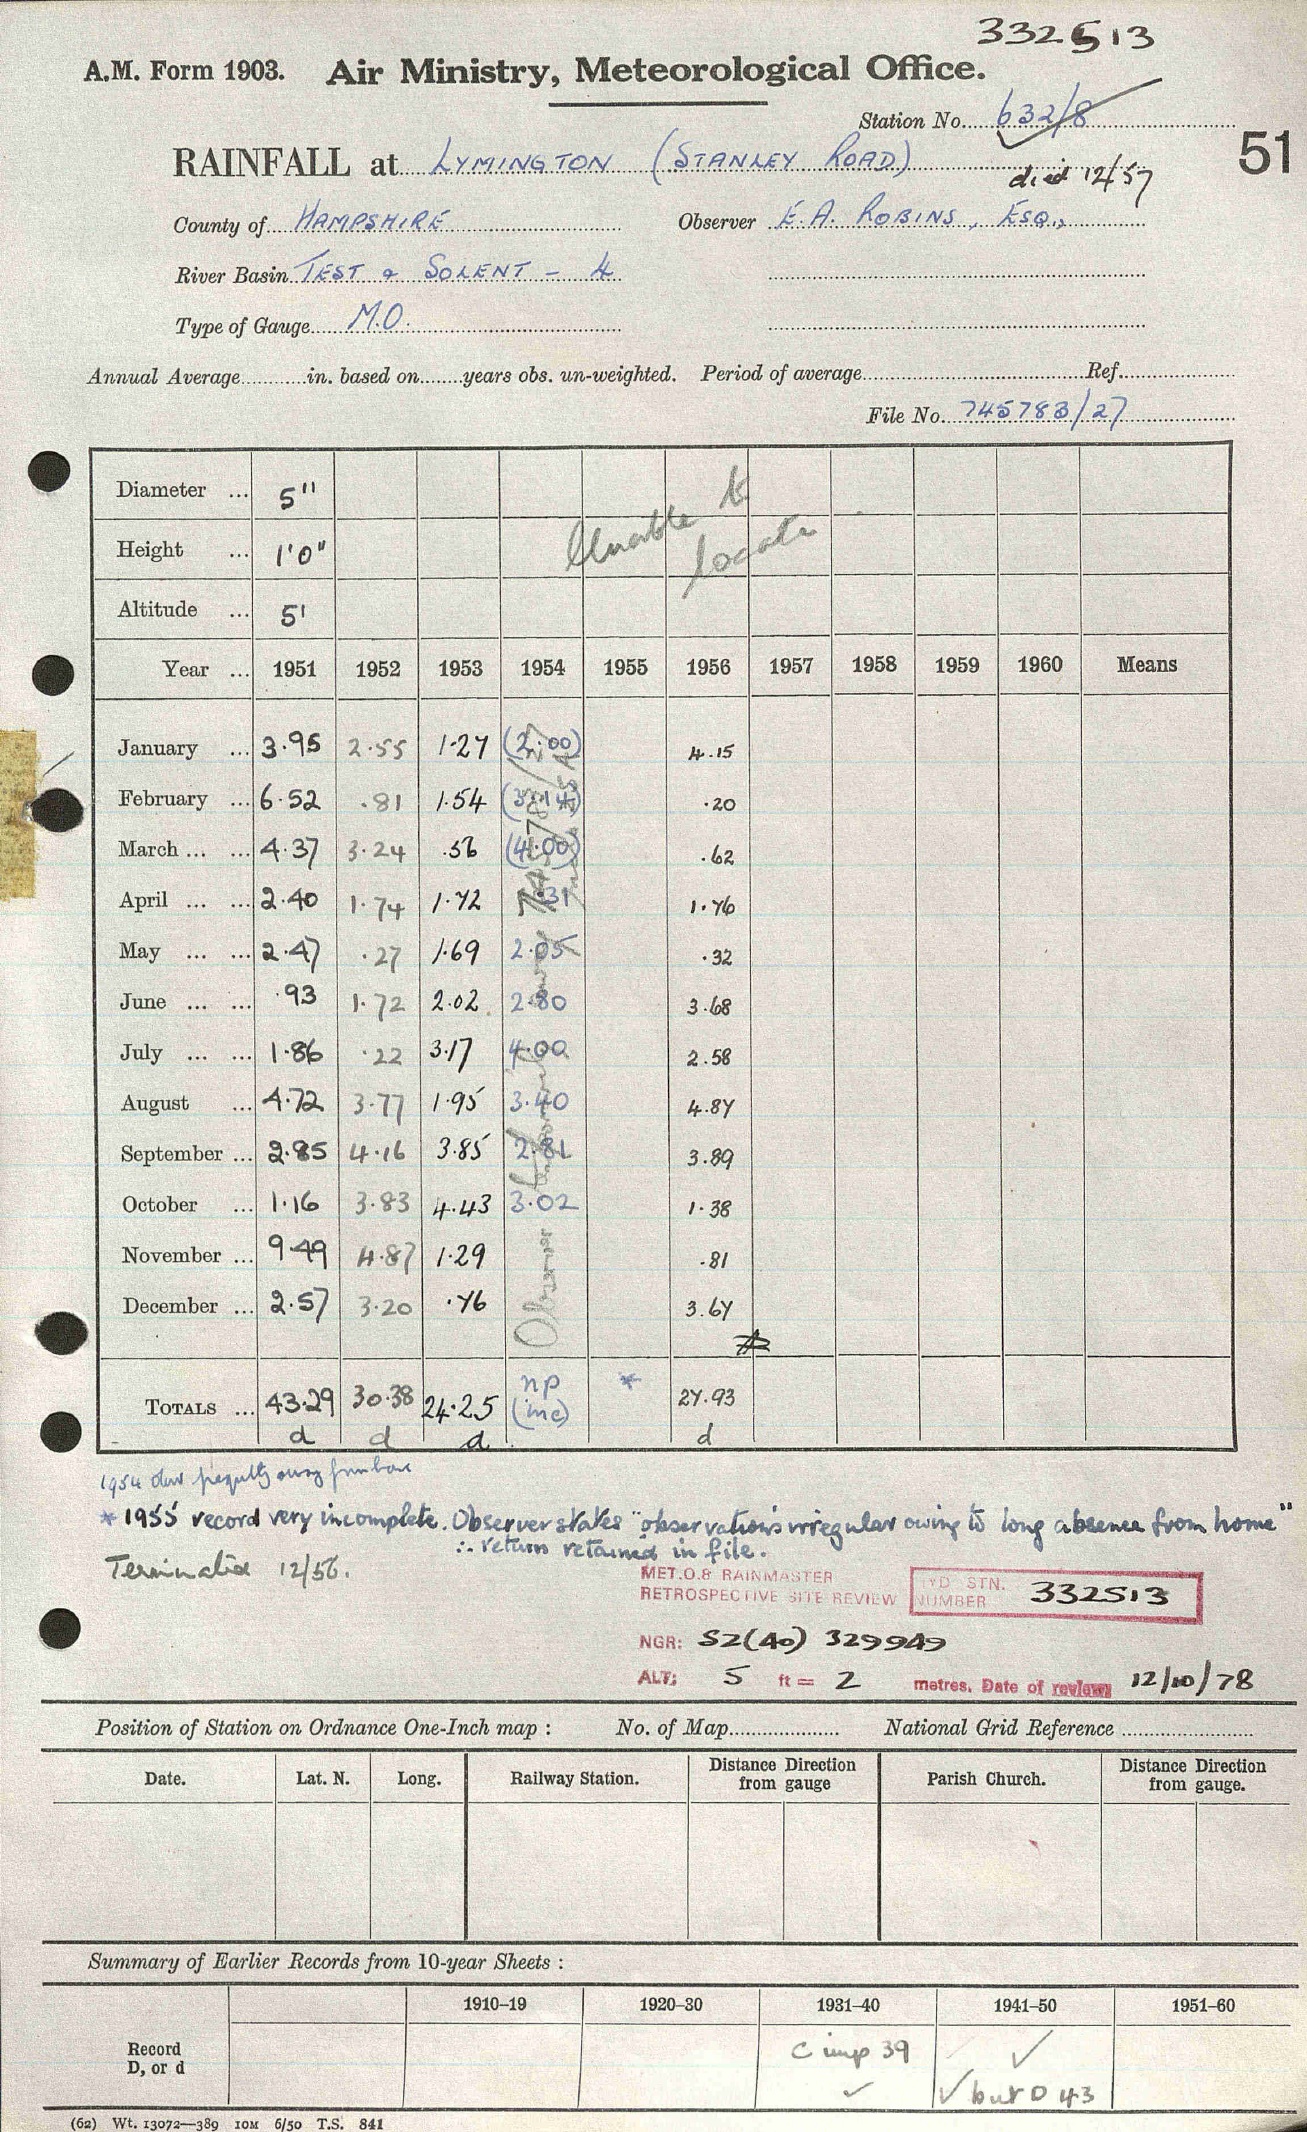 332513
A.M. Form 1903. Air Ministry, Meteorological Office.
Station No. 632/8
51
RAINFALL at LYMINGTON (STANLEY ROAD)
died 12/57
County of HAMPSHIRE Observer E.A. ROBINS, ESQ.,
River Basin TEST & SOLENT - 4
Type of Gauge M.O.
Annual Average in. based on years obs. un-weighted. Period of average Ref.
File No. 745783/27
Diameter ... 5"
Unable to locate
Height ... 1'0"
Altitude ... 5'
Year ... 1951 1952 1953 1954 1955 1956 1957 1958 1959 1960 Means
January ... 3.95 2.55 1.27 (2.00) 4.15
February ... 6.52 .81 1.54 (3.14) .20
March ... ... 4.37 3.24 .56 (4.00) .62
April ... ... 2.40 1.74 1.72 .31 1.76
May ... ... 2.47 .27 1.69 2.05 .32
June ... ... .93 1.72 2.02 2.80 3.68
July ... ... 1.86 .22 3.17 4.00 2.58
August ... 4.72 3.77 1.95 3.40 4.87
September ... 2.85 4.16 3.85 2.81 3.89
October ... 1.16 3.83 4.43 3.02 1.38
November ... 9.49 4.87 1.29 .81
December ... 2.57 3.20 .76 3.67
Observer 745783/27
TOTALS ... 43.29 30.38 24.25 np (inc) * 27.93
d d d d
1954 away from home
* 1955 record very incomplete. Observer states "observations irregular owing to long absence from home"
∴ return retained in file.
Terminated 12/56.
MET.O.8 RAINMASTER
RETROSPECTIVE SITE REVIEW
STN. NUMBER 332513
NGR: SZ(40) 329949
ALT: 5 ft = 2 metres. Date of review 12/10/78
Position of Station on Ordnance One-Inch map : No. of Map National Grid Reference
Date. Lat. N. Long. Railway Station. Distance from gauge Direction Parish Church. Distance from gauge. Direction
Summary of Earlier Records from 10-year Sheets :
1910–19 1920–30 1931–40 1941–50 1951–60
Record D, or d C imp 39 ✓
✓ ✓ but D 43
(62) Wt. 13072—389 10M 6/50 T.S. 841